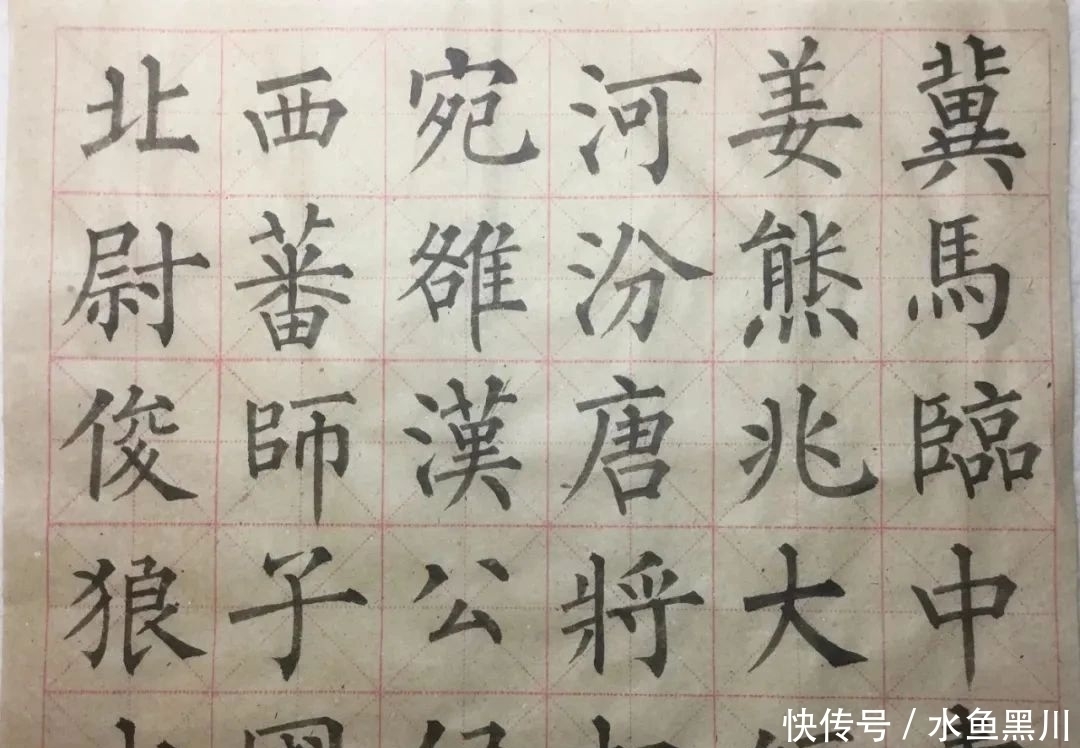 冀馬臨中
姜熊兆大
河汾唐將
宛雒漢公
西蕃師子
北尉俊狼
快传号 / 水鱼黑川